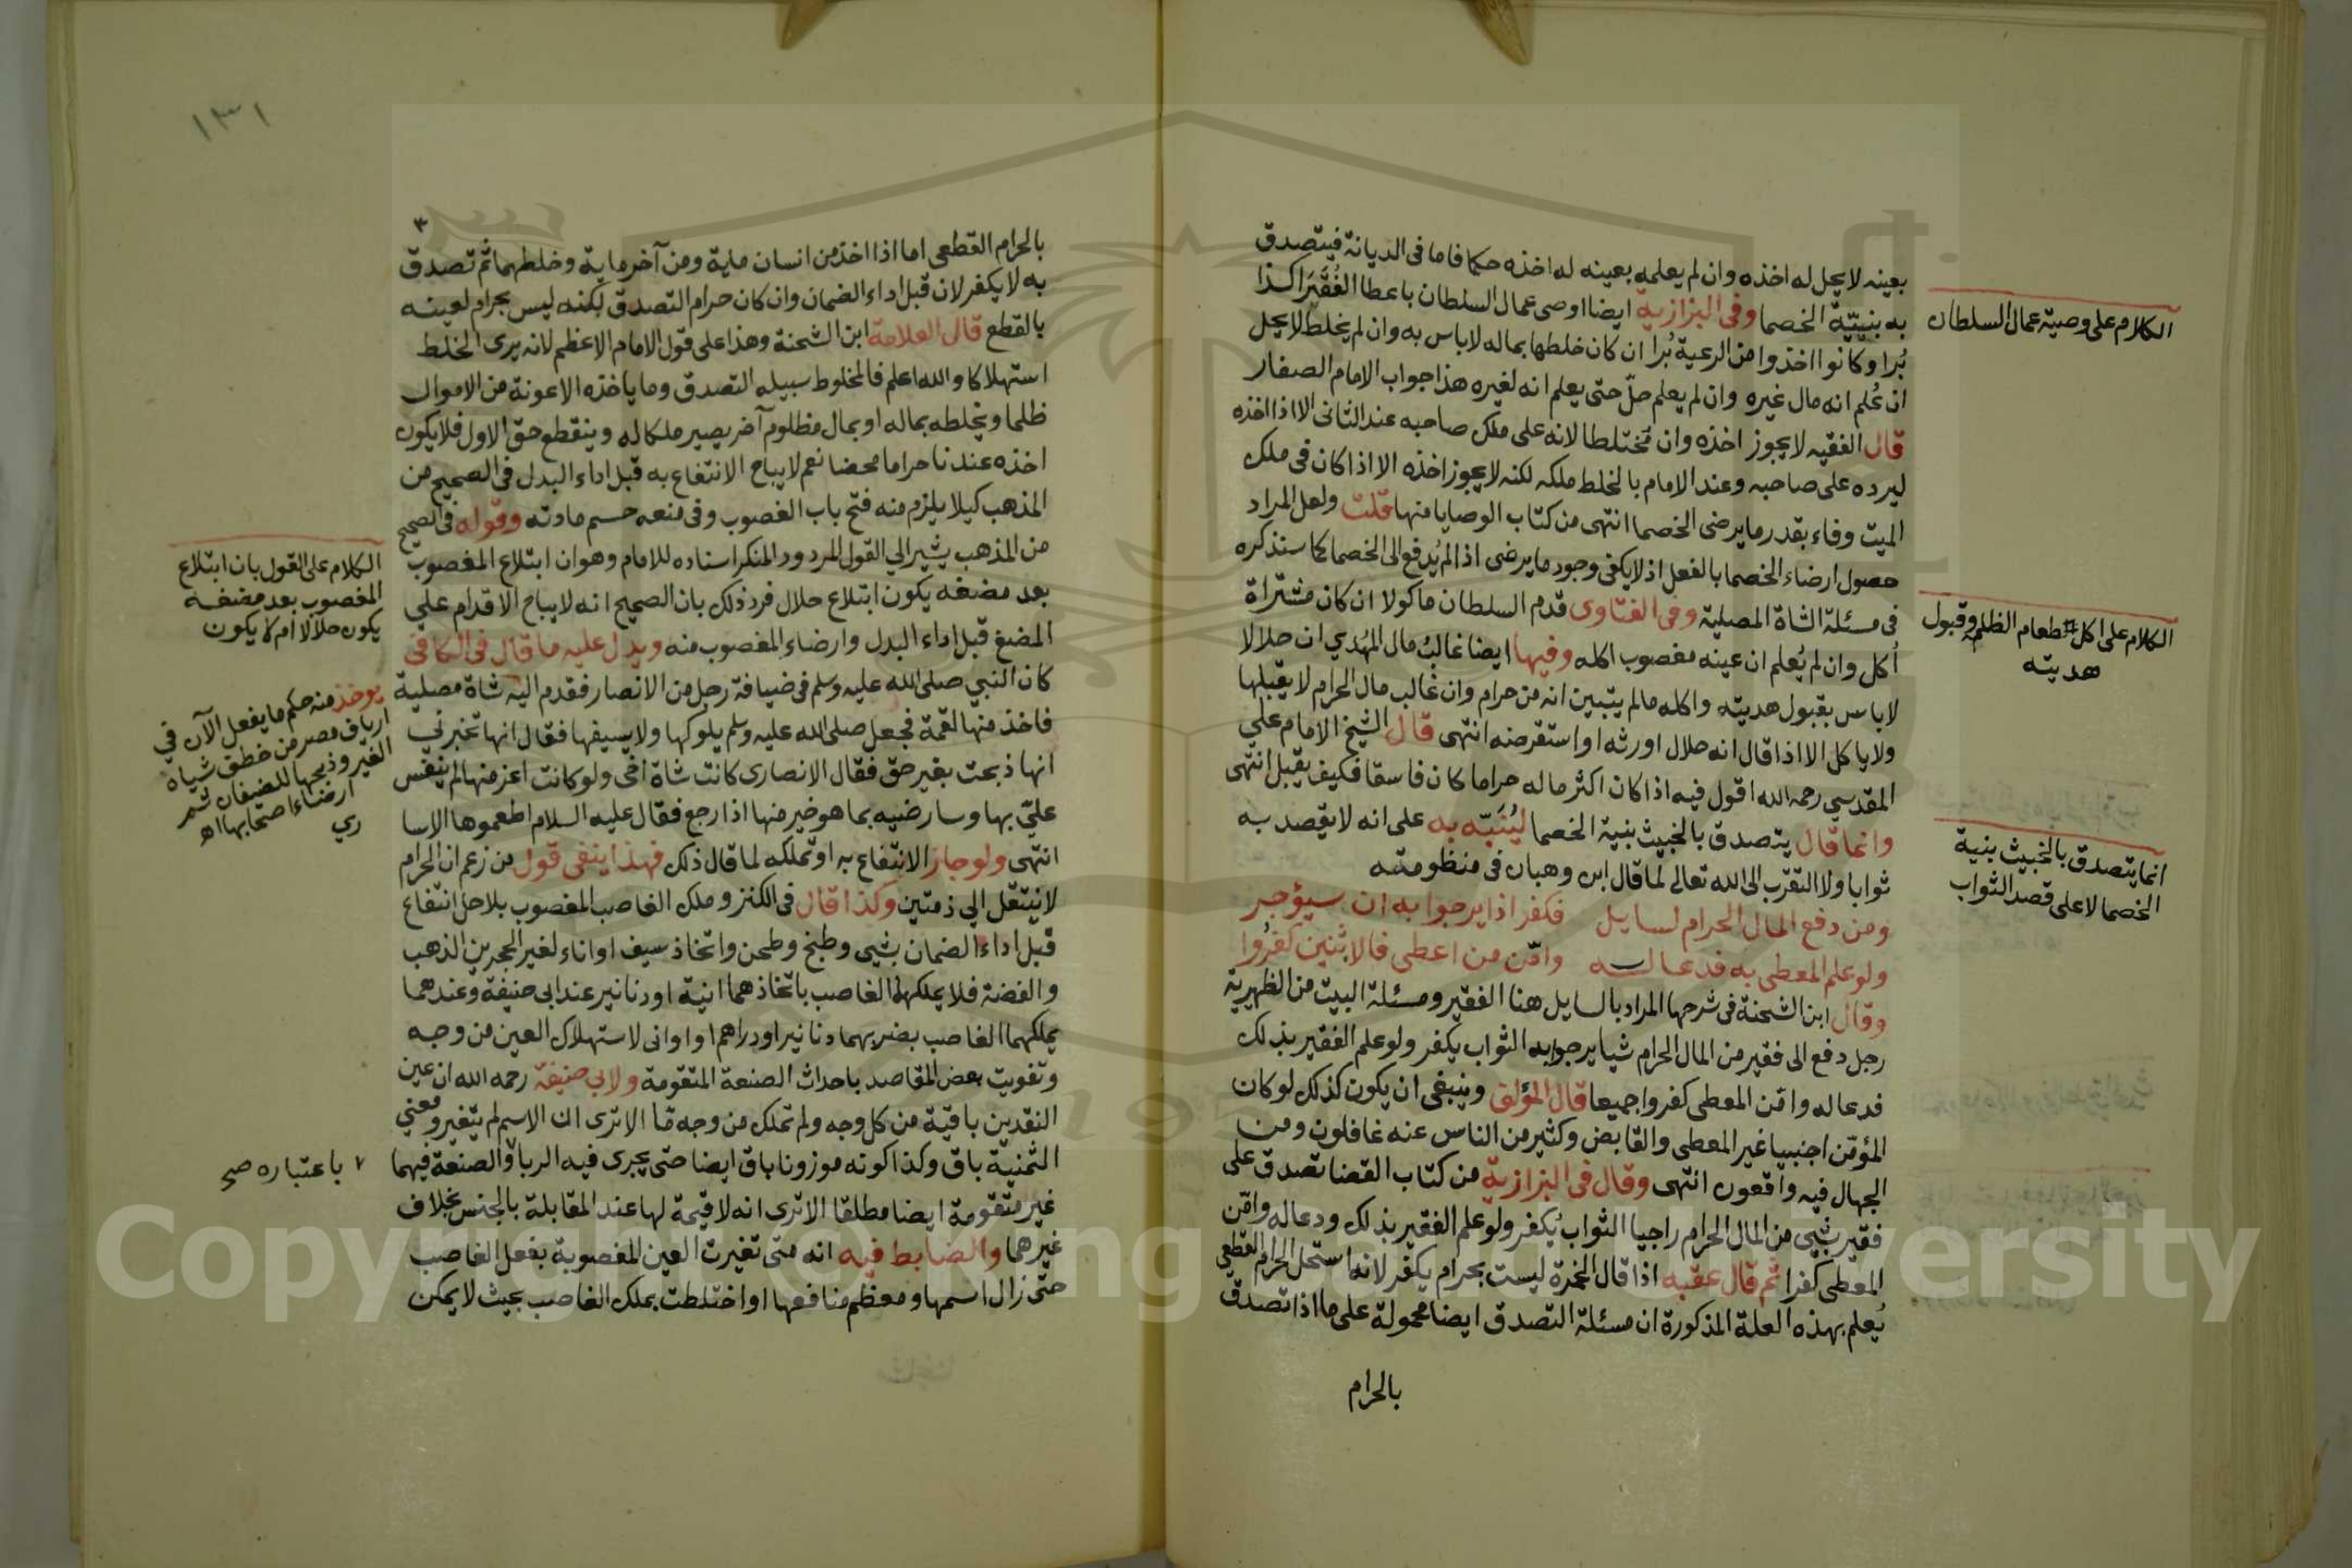 بعينه لا يحل له اخذه وان لم يعلمه بعينه له اخذه حكما فاما فى الديانة فيتصدق
به بنيّة الخصما وفى البزازية ايضا اوصى عمال السلطان باعطا الفُقَرَا كذا
بُرا وكانوا اخذوا من الرعية بُرا ان كان خلطها بماله لا باس به وان لم يخلط لا يحل
ان عُلم انه مال غيره وان لم يعلم حلّ حتى يعلم انه لغيره هذا جواب الامام الصفار
قال الفقيه لا يجوز اخذه وان مختلطا لانه على ملك صاحبه عند الثانى الا اذا اخذه
ليرده على صاحبه وعند الامام بالخلط ملكه لكنه لا يجوز اخذه الا اذا كان فى ملك
الميت وفاء بقدر ما يرضى الخصما انتهى من كتاب الوصايا منها قلت ولعل المراد
حصول ارضاء الخصما بالفعل اذ لا يكفى وجود ما يرضى اذ الم يُدفع الى الخصما كما سنذكره
فى مسئلة الشاة المصلية وفى الفتاوى قدم السلطان ماكولا ان كان مشتراة
أكل وان لم يُعلم ان عينه مغصوب اكله وفيها ايضا غالبُ مال المُهدي ان حلالا
لا باس بقبول هديته واكله مالم يتبين انه من حرام وان غالب مال الحرام لا يقبلها
ولا ياكل الا اذا قال انه حلال اورثه او استقرضه انتهى قال الشيخ الامام علي
المقدسي رحمه الله اقول فيه اذا كان اكثر ماله حراما كان فاسقا فكيف يقبل انتهى
وانما قال يتصدق بالخبيث بنية الخصما ليُنَبّه به على انه لا يقصد به
ثوابا ولا التقرّب الى الله تعالى لما قال ابن وهبان فى منظومته
ومن دفع المال الحرام لسايل فكفر اذا يرجوا به ان سيؤجر
ولو علم المعطى به فدعا له وامّن من اعطى فالاثنين كفرُوا
وقال ابن الشحنة فى شرحها المراد بالسايل هنا الفقير ومسئلة البيت من الظهيرية
رجل دفع الى فقير من المال الحرام شيا يرجوا به الثواب يكفر ولو علم الفقير بذلك
فدعا له وامّن المعطى كفروا جميعا قال المؤلف وينبغى ان يكون كذلك لو كان
المؤمّن اجنبيا غير المعطى والقابض وكثير من الناس عنه غافلون ومن
الجهال فيه واقعون انتهى وقال فى البزازية من كتاب القضا تصدق على
فقير بشي من المال الحرام راجيا الثواب يُكفر ولو علم الفقير بذلك ودعا له وامّن
المعطى كفرا ثم قال عقبه اذا قال الخمرة ليست بحرام يكفر لانه استحل الحرام القطعي
يُعلم بهذه العلة المذكورة ان مسئلة التصدق ايضا محمولة على ما اذا تصدق
بالحرام
الكلام على وصية عمال السلطان
الكلام على اكل طعام الظلمة وقبول
هديته
انما يتصدق بالخبيث بنية
الخصما لا على قصد الثواب
١٣١
٣
بالحرام القطعى اما اذا اخذ من انسان ماية ومن آخر ماية وخلطهما ثم تصدق
به لا يكفر لان قبل اداء الضمان وان كان حرام التصدق لكنه ليس بحرام لعينه
بالقطع قال العلامة ابن الشحنة وهذا على قول الامام الاعظم لانه يرى الخلط
استهلاكا والله اعلم فالمخلوط سبيله التصدق وما ياخذه الاعونة من الاموال
ظلما ويخلطه بماله او بمال مظلوم آخر يصير ملكا له وينقطع حق الاول فلا يكون
اخذه عندنا حراما محضا نعم لا يباح الانتفاع به قبل اداء البدل فى الصحيح من
المذهب كيلا يلزم منه فتح باب الغصوب وفى منعه حسم مادته وقوله فى الصحيح
من المذهب يشير الي القول المردود المنكر اسناده للامام وهو ان ابتلاع المغصوب
بعد مضغه يكون ابتلاع حلال فرد ذلك بان الصحيح انه لا يباح الاقدام علي
المضغ قبل اداء البدل وارضاء المغصوب منه ويدل عليه ما قال فى الكافى
كان النبي صلى الله عليه وسلم فى ضيافة رجل من الانصار فقدم اليه شاة مصلية
فاخذ منها لقمة فجعل صلى الله عليه وسلم يلوكها ولا يسيغها فقال انها تخبرني
انها ذبحت بغير حق فقال الانصارى كانت شاة اخى ولو كانت اعز منها لم ينفس
عليّ بها وسارضيه بما هو خير منها اذا رجع فقال عليه السلام اطعموها الاسا
انتهى ولو جاز الانتفاع به او تملكه لما قال ذلك فهذا ينفى قول من زعم ان الحرام
لا ينتقل الي ذمتين وكذا قال فى الكنز وملك الغاصب المغصوب بلا حل انتفاع
قبل اداء الضمان بشيى وطبخ وطحن واتخاذ سيف او اناء لغير الحجرين الذهب
والفضة فلا يملكهما الغاصب باتخاذهما انية او دنانير عند ابي حنيفة وعندهما
يملكهما الغاصب بضربهما دنانير او دراهم او اوانى لاستهلاك العين من وجه
وتفويت بعض المقاصد باحداث الصنعة المتقومة ولابي حنيفة رحمه الله ان عين
النقدين باقية من كل وجه ولم تملك من وجه ما الا ترى ان الاسم لم يتغير ومعني
الثمنية باق وكذا كونه موزونا باق ايضا حتى يجرى فيه الربا والصنعة فيهما
غير متقومة ايضا مطلقا الا ترى انه لا قيمة لها عند المقابلة بالجنس بخلاف
غيرهما والضابط فيه انه متى تغيرت العين المغصوبة بفعل الغاصب
حتى زال اسمها ومعظم منافعها او اختلطت بملك الغاصب بحيث لا يمكن
الكلام على القول بان ابتلاع
المغصوب بعد مضغه
يكون حلالا ام لا يكون
يوخذ منه حكم ما يفعل الآن في
ارياف مصر من خطف شياه
الغير وذبحها للضيفان ثم
ارضاء اصحابها اهـ
باعتباره صح
Copyright © King Saud University
1957